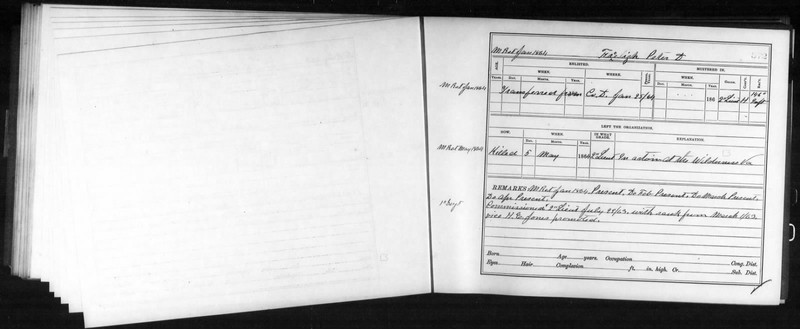 M Rol Jan 1864
Peter D
ENLISTED.
MUSTERED IN.
WHEN.
WHERE.
WHEN.
GRADE.
YEARS.
DAY.
MONTH.
YEAR.
DAY.
MONTH.
YEAR.
M Rol Jan 1864
Transferred from Co. D. Jan 25/64
186
2" Lieut
H
146"
LEFT THE ORGANIZATION.
HOW.
WHEN.
IN WHAT GRADE.
EXPLANATION.
DAY.
MONTH.
YEAR.
M Rol May 1864
Killed 5 May 1864 2" Lieut In action at the Wilderness Va
REMARKS M Rol Jan 1864 Present. Do Feb Present. Do March Present.
Do Apr Present.
Commissioned 2" Lieut July 28/63. with rank from March 1/63
vice H. E. Jones promoted.
Born Age years. Occupation Cong. Dist.
Eyes Hair Complexion ft. in. high. Cr. Sub. Dist.